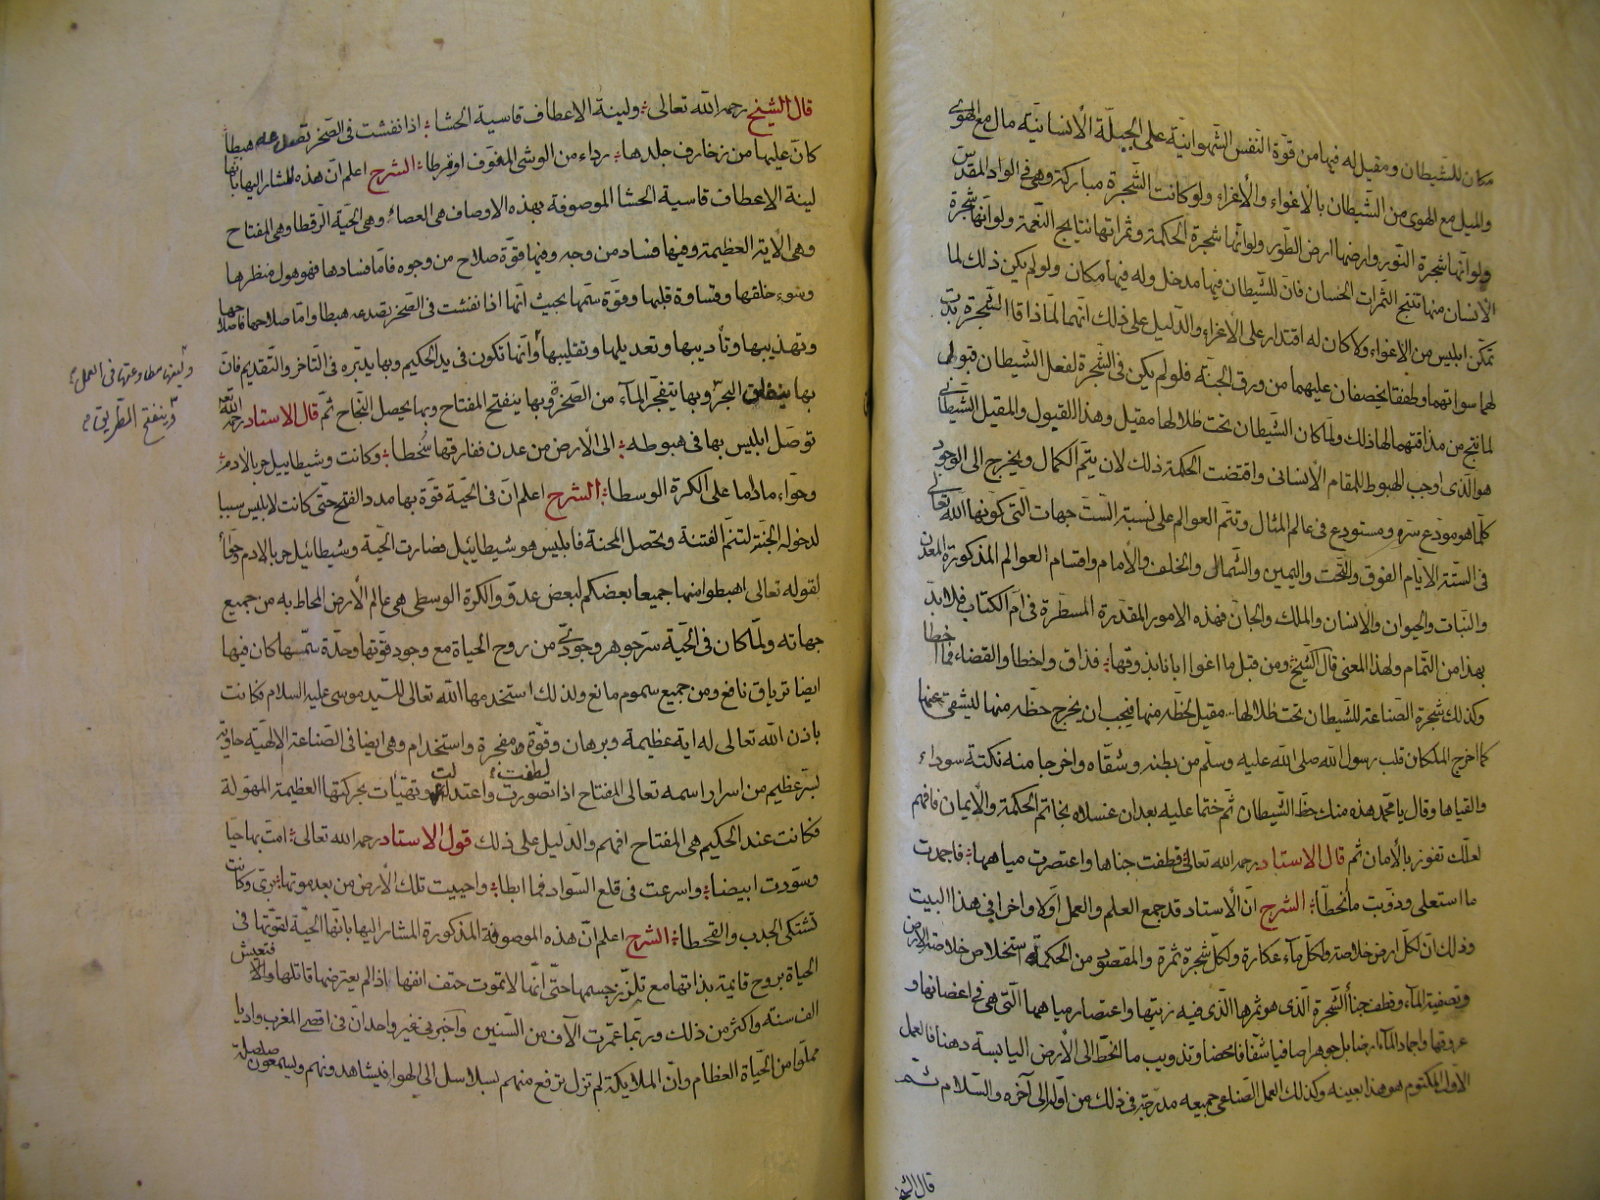 مكان للشيطان ومقيل له فيها من قوة النفس الشهوانية على الجبلة الانسانية مال مع الهوى
والميل مع الهوى من الشيطان بالاغواء والاغراء ولو كانت الشجرة مباركة وهى فى الواد المقدس
ولو انها شجرة النور وارضها ارض الطور ولو انها شجرة الحكمة وثمراتها نتايج النعمة ولو انها شجرة
الانسان منها تنتج الثمرات الحسان فان للشيطان فيها مدخل وله فيها مكان ولو لم يكن ذلك لما
تمكن ابليس من الاغواء ولا كان له اقتدار على الاغراء والدليل على ذلك انهما لما ذاقا الشجرة بدت
لهما سواتهما وطفقا يخصفان عليهما من ورق الجنة فلو لم يكن فى الشجرة لفعل الشيطان قبول
لما نتج من مذاقتهما لها ذلك ولما كان الشيطان تحت ظلالها مقيل وهذا القبول والمقيل الشيطانى
هو الذى اوجب الهبوط للمقام الانسانى واقتضت الحكمة ذلك لان يتم الكمال ويخرج الى الوجود
كلما هو مودع سره ومستودع فى عالم المثال وتتم العوالم على نسبة الست جهات التى كونها الله تعالى
فى الستة الايام الفوق والتحت واليمين والشمال والخلف والامام واقسام العوالم المذكورة المعدن
والنبات والحيوان والانسان والملك والجان فهذه الامور المقدرة المسطرة فى ام الكتاب فلا بد
بهذا من التمام ولهذا المعنى قال الشيخ ومن قبل ما اغوا ابانا بذوقها فذاق واخطا والقضاء فما اخطا
وكذلك شجرة الصناعة للشيطان تحت ظلالها مقيل لحظه منها فيجب ان يخرج حظه منها ليشفى عنها
كما اخرج الملكان قلب رسول الله صلى الله عليه وسلم من بطنه وشقاه واخرجا منه نكتة سوداء
والقياها وقال يا محمد هذه منك حظ الشيطان ثم ختما عليه بعد ان غسلاه بخاتم الحكمة والايمان فافهم
لعلك تفوز بالامان ثم قال الاستاد رحمه الله تعالى قطفت جناها واعتصرت مياهها فاجمدت
ما استعلى وذوبت ما انحطا الشرح ان الاستاد قد جمع العلم والعمل اولا واخرا فى هذا البيت
وذلك ان لكل ارض خلاصة ولكل ماء عكارة ولكل شجرة ثمرة والمقصود من الحكمة استخلاص خلاصة الارض
وتصفية الماء وقطف جنا الشجرة الذى هو ثمرها الذى فيه زيتها واعتصار مياهها التى هى فى اغصانها و
عروقها واجماد الماء ارضا بل جوهرا صافيا شفافا محضا وتذويب ما انحط الى الارض اليابسة دهنا فالعمل
الاول المكتوم هو هذا بعينه وكذلك العمل الصناعى جميعه مدرجة فى ذلك من اوله الى آخره والسلام ثم
قال الشيخ
قال الشيخ رحمه الله تعالى ولينة الاعطاف قاسية الحشا اذا نفشت فى الصخر تصدعه هبطا
كان عليها من زخارف جلدها رداء من الوشى المفوف او مرطا الشرح اعلم ان هذه المشار اليها بانها
لينة الاعطاف قاسية الحشا الموصوفة بهذه الاوصاف هى العصا وهى الحية الرقطا وهى المفتاح
وهى الاية العظيمة وفيها فساد من وجه وفيها قوة صلاح من وجوه فاما فسادها فهو هول منظرها
وسوء خلقها وقساوة قلبها وقوة سمها بحيث انها اذا نفشت فى الصخر تصدعه هبطا واما صلاحها فاصلاحها
وتهذيبها وتأديبها وتعديلها وتقليبها وانها تكون فى يد الحكيم وبها يدبره فى التاخر والتقديم فان
بها ينفلق البحر وبها يتفجر الماء من الصخر وبها ينفتح المفتاح وبها يحصل النجاح ثم قال الاستاد رحمه الله تعالى
توصل ابليس بها فى هبوطه الى الارض من عدن ففارقها سخطا وكانت وشيطاييل حربا لادم
وحواء ما داما على الكرة الوسطا الشرح اعلم ان فى الحية قوة بها مدد الفتح حتى كانت لابليس سببا
لدخوله الجنة لتتم الفتنة وتحصل المحنة فابليس هو شيطاييل فصارت الحية وشيطاييل حربا لادم وحوّاء
لقوله تعالى اهبطوا منها جميعا بعضكم لبعض عدو والكرة الوسطى هى عالم الارض المحاط به من جميع
جهاته ولما كان فى الحية سر جوهر وجودى من روح الحياة مع وجود قوتها وحدة سمها كان فيها
ايضا ترياق نافع ومن جميع سموم مانع ولذلك استخدمها الله تعالى للسيد موسى عليه السلام فكانت
باذن الله تعالى له اية عظيمة وبرهان وقوة معجزة واستخدام وهى ايضا فى الصناعة الالهية حاوية
لسر عظيم من اسرار اسمه تعالى المفتاح اذا تصورت لطفت واعتدلت وتهيات بحركتها العظيمة المهولة
فكانت عند الحكيم هى المفتاح افهم والدليل على ذلك قول الاستاد رحمه الله تعالى امت بها حيا
وسودت ابيضا واسرعت فى قلع السواد فما ابطا واحييت تلك الارض من بعد موتها برى وكانت
تشتكى الجدب والقحطا الشرح اعلم ان هذه الموصوفة المذكورة المشار اليها بانها الحية لقوتها فى
الحياة بروح قايمة بذاتها مع تلزز جسمها حتى انها لا تموت حتف انفها اذا لم يعترضها قاتلها والا فتعيش
الف سنة واكثر من ذلك وربما عمرت الآف من السنين واخبرنى غير واحد ان فى اقصى المغرب واديا
مملوا من الحياة العظام وان الملايكة لم تزل ترفع منهم بسلاسل الى الهوا فيشاهدونهم ويسمعون صلصلة
ولينها مطاوعتها فى العمل
وينفتح الطريق